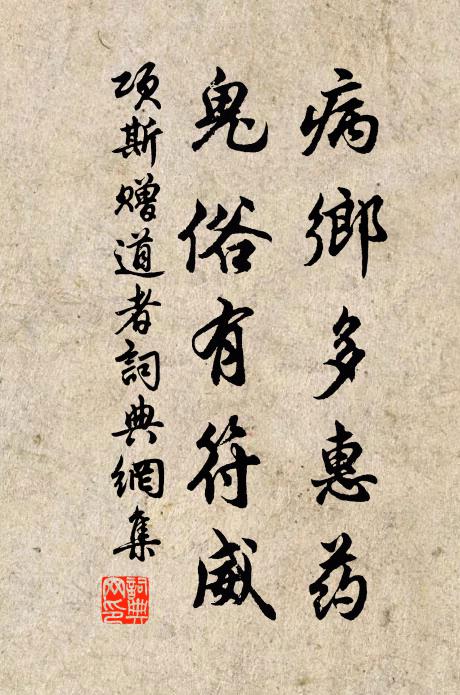 病鄉多惠药
鬼俗有符威
项斯赠道者詞典網集
詞典网印